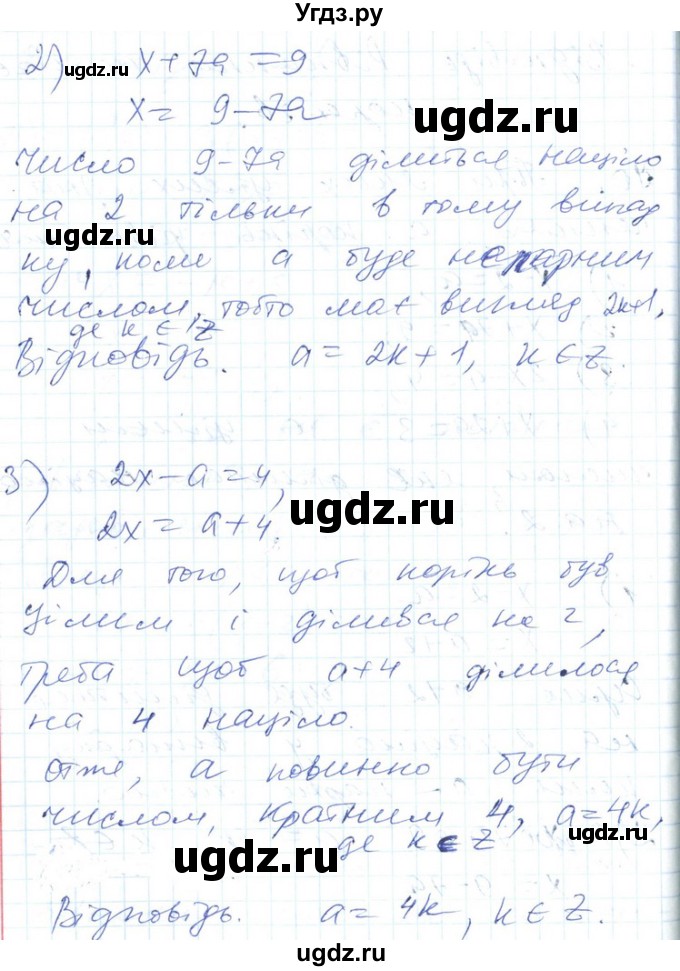 Угдз.ру
2) x + 7a = 9
ugdz.ru
x = 9 - 7a
ugdz.ru
число 9 - 7a ділиться націло
на 2 тільки в тому випад
ugdz.ru
ку, коли a буде непарним
числом, тобто має вигляд 2k+1,
де k ∈ Z
Відповідь. a = 2k + 1, k ∈ Z.
3) 2x - a = 4,
ugdz.ru
2x = a + 4.
Для того, щоб корінь був
цілим і ділився на 2,
треба щоб a+4 ділилося
на 4 націло.
отже, a повинно бути
числом, кратним 4, a = 4k,
ugdz.ru
де k ∈ Z
ugdz.ru
Відповідь. a = 4k, k ∈ Z.
ugdz.ru